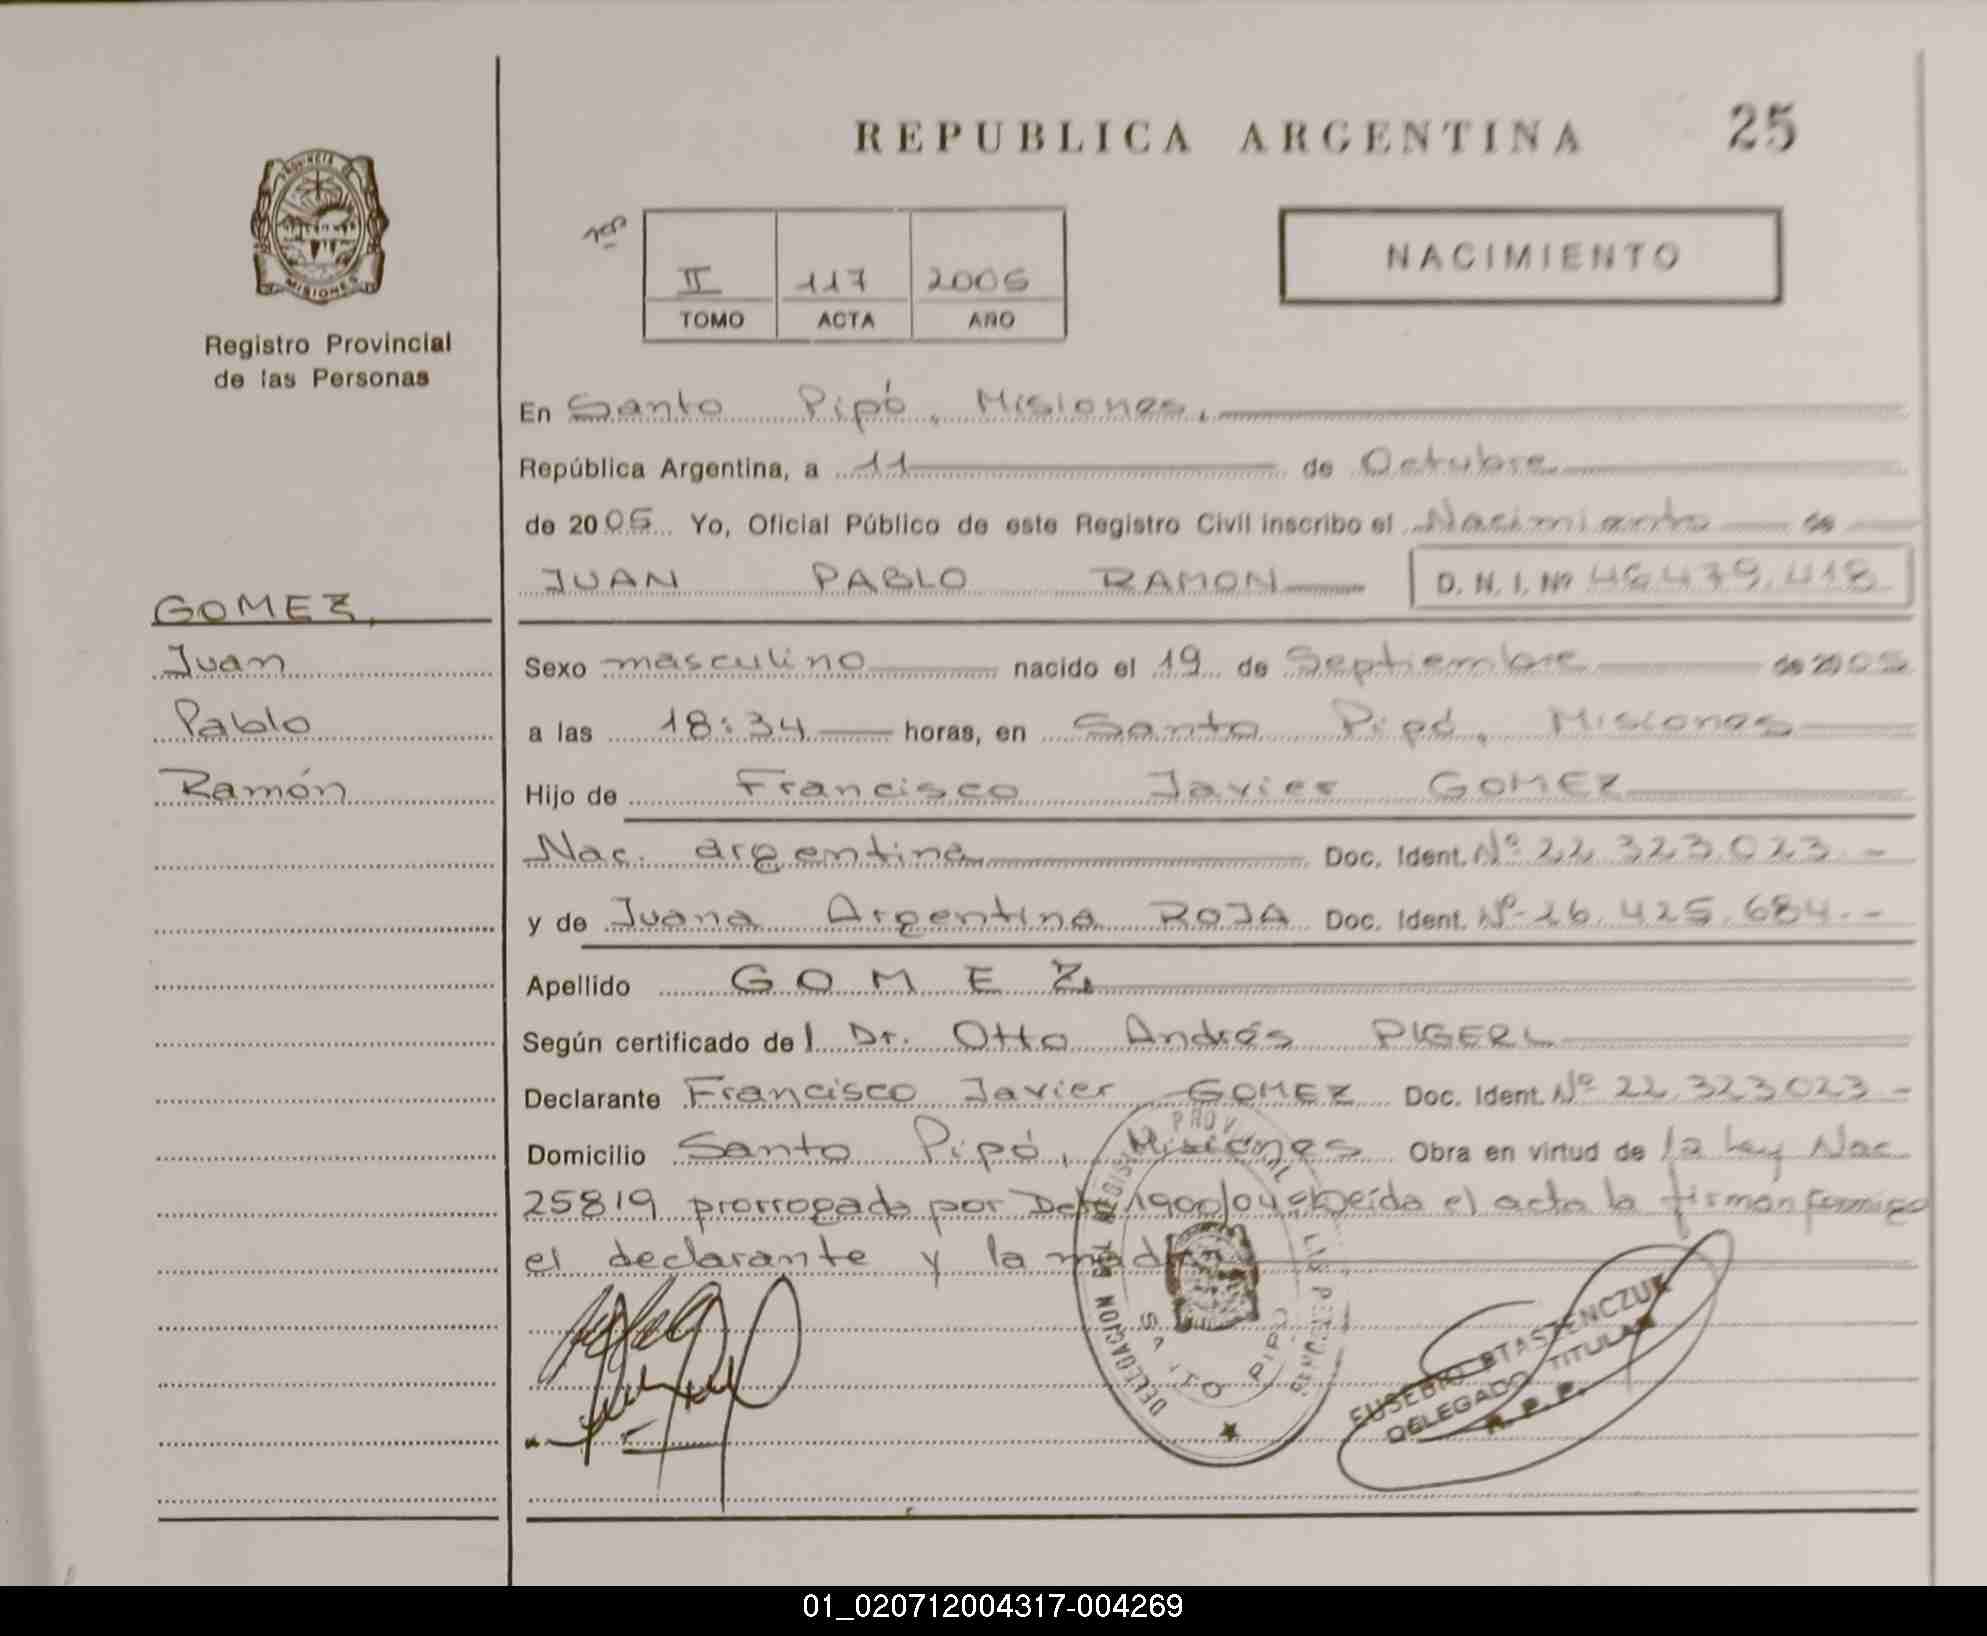 REPUBLICA ARGENTINA
25
PROVINCIA
MISIONES
Registro Provincial
de las Personas
NACIMIENTO
II 117 2005
TOMO ACTA AÑO
En Santo Pipó, Misiones,
República Argentina, a 11 de Octubre
de 2005 Yo, Oficial Público de este Registro Civil inscribo el Nacimiento de
JUAN PABLO RAMON D. N. I. Nº 46.479.418
GOMEZ,
Juan
Pablo
Ramón
Sexo masculino nacido el 19 de Septiembre de 2005
a las 18:34 horas, en Santo Pipó, Misiones
Hijo de Francisco Javier GOMEZ
Nac. argentina Doc. Ident. Nº 22.323.023.-
y de Juana Argentina ROJA Doc. Ident. Nº 16.425.684.-
Apellido GOMEZ
Según certificado del Dr. Otto Andrés PIGERL
Declarante Francisco Javier GOMEZ Doc. Ident. Nº 22.323023-
Domicilio Santo Pipó, Misiones Obra en virtud de la Ley Nac
25819 prorrogada por Dcto 1900/04. Leída el acta la firman conmigo
el declarante y la madre
DELEGACION
SANTO PIPO
EUSEBIO STASZENCZUK
DELEGADO TITULAR
R. P. P.
01_020712004317-004269